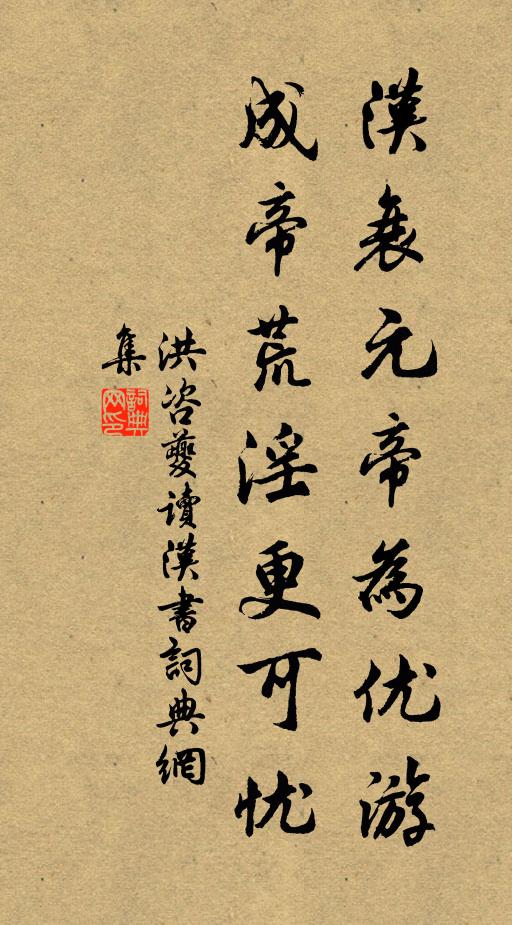 漢衰元帝為优游
成帝荒淫更可忧
洪咨夔讀漢書詞典網
集
詞典
网印